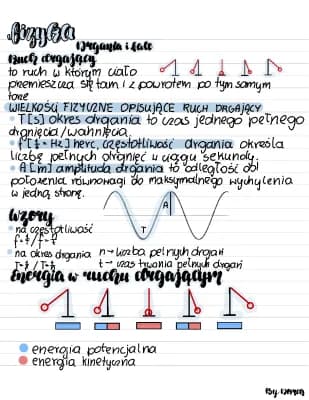 fizyka
Drgania i fale
Ruch drgający
to ruch w którym ciało
przemieszcza się tam i z powrotem po tym samym
torze
WIELKOŚCI FIZYCZNE OPISUJĄCE RUCH DRGAJĄCY
• T[s] okres drgania to czas jednego pełnego
drgnięcia/wahnięcia.
• f[1/s = Hz] herc, częstotliwość drgania określa
liczbę pełnych drgnięć w ciągu sekundy.
• A[m] amplituda drgania to odległość od
położenia równowagi do maksymalnego wychylenia
w jedną stronę.
A
T
Wzory
• na częstotliwość
• na okres drgania
n - liczba pełnych drgań
t - czas trwania pełnych drgań
Energia w ruchu drgającym
energia potencjalna
energia kinetyczna